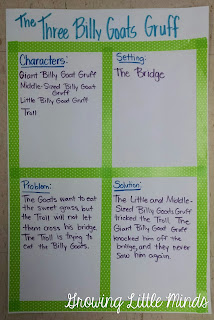 The Three Billy Goats Gruff
Characters:
Giant Billy Goat Gruff
Middle-Sized Billy Goat
Gruff
Little Billy Goat Gruff
Troll
Setting:
The Bridge
Problem:
The Goats want to eat
the sweet grass, but
the Troll will not let
them cross his bridge.
The Troll is trying to
eat the Billy Goats.
Solution:
The Little and Middle-
Sized Billy Goats Gruff
tricked the Troll. The
Giant Billy Goat Gruff
knocked him off the
bridge, and they never
saw him again.
Growing Little Minds